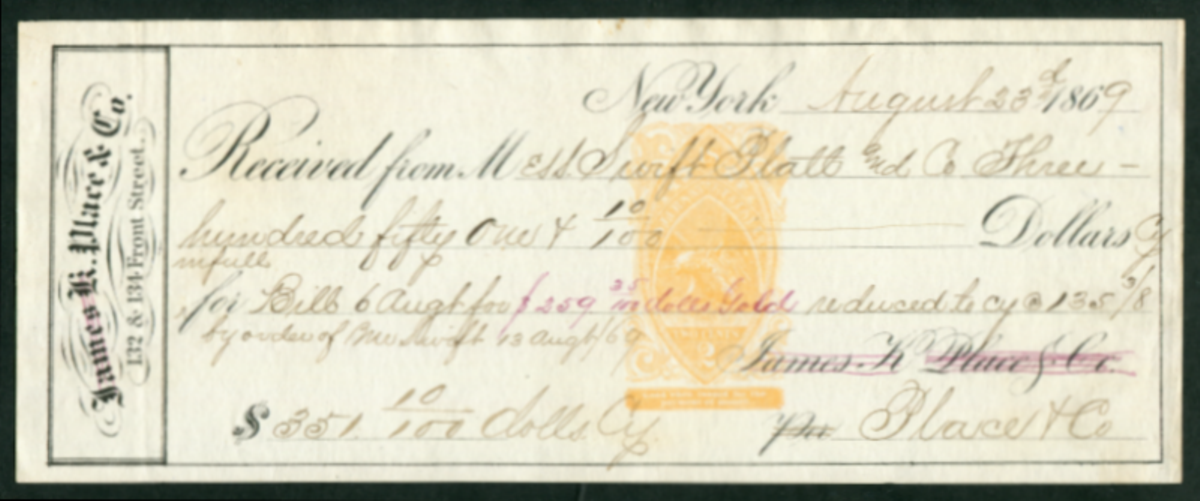 James K. Place & Co.
132 & 134 Front Street.
New York August 23d 1869
Received from Mess Swift Platt and Co Three —
hundred fifty One & 10/100 Dollars Cy
in full
for Bill 6 Augt for $259 25/100 dolls Gold reduced to cy @ 135 3/8
by order of Mr Swift 13 Augt/69
James K. Place & Co.
$ 351. 10/100 dolls. Cy.
Per Place & Co